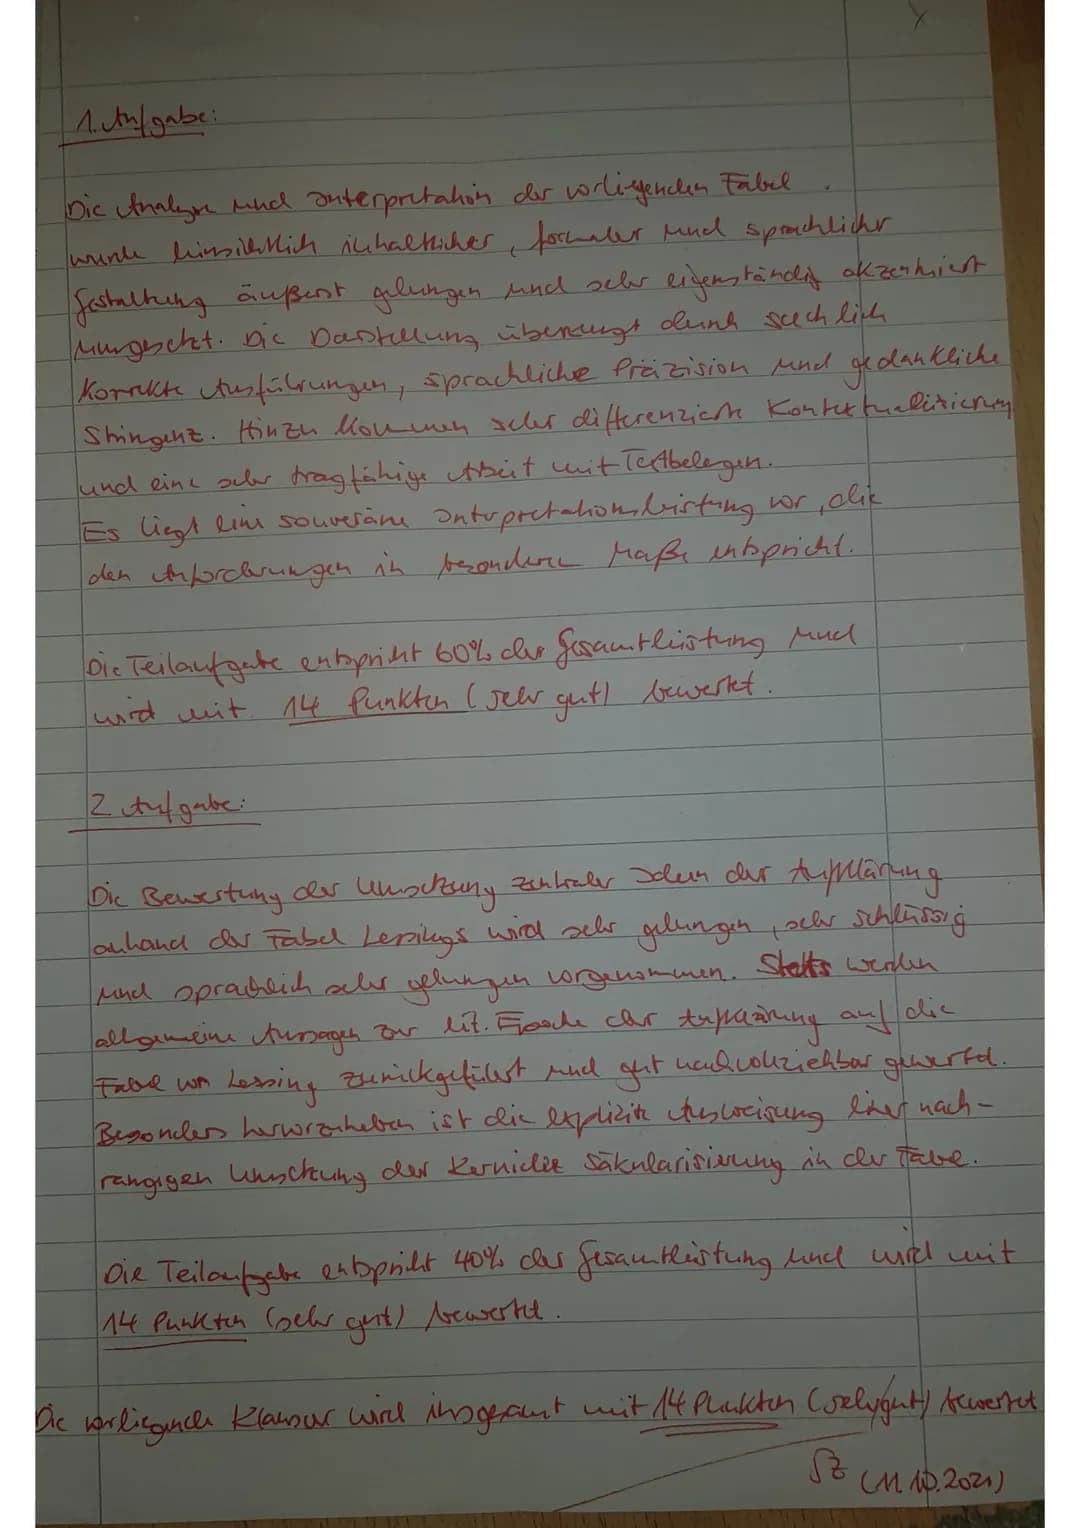 1. Aufgabe:
Die Analyse und Interpretation der vorliegenden Fabel
wurde hinsichtlich inhaltlicher, formaler und sprachlicher
Gestaltung äußerst gelungen und sehr eigenständig akzentuiert
umgesetzt. Die Darstellung überzeugt durch sachlich
korrekte Ausführungen, sprachliche Präzision und gedankliche
Stringenz. Hinzu kommen sehr differenzierte Kontextualisierung
und eine sehr tragfähige Arbeit mit Textbelegen.
Es liegt eine souveräne Interpretationsleistung vor, die
den Anforderungen in besonderem Maße entspricht.
Die Teilaufgabe entspricht 60% der Gesamtleistung und
wird mit 14 Punkten (sehr gut) bewertet.
2. Aufgabe:
Die Bewertung der Umsetzung zentraler Ideen der Aufklärung
anhand der Fabel Lessings wird sehr gelungen, sehr schlüssig
und sprachlich sehr gelungen vorgenommen. Stets werden
allgemeine Aussagen zur lit. Epoche der Aufklärung auf die
Fabel von Lessing zurückgeführt und gut nachvollziehbar gewertet.
Besonders hervorzuheben ist die explizite Ausweisung einer nach-
rangigen Umsetzung der Kernidee Säkularisierung in der Fabel.
Die Teilaufgabe entspricht 40% der Gesamtleistung und wird mit
14 Punkten (sehr gut) bewertet.
Die vorliegende Klausur wird insgesamt mit 14 Punkten (sehr gut) bewertet
(11.10.2021)